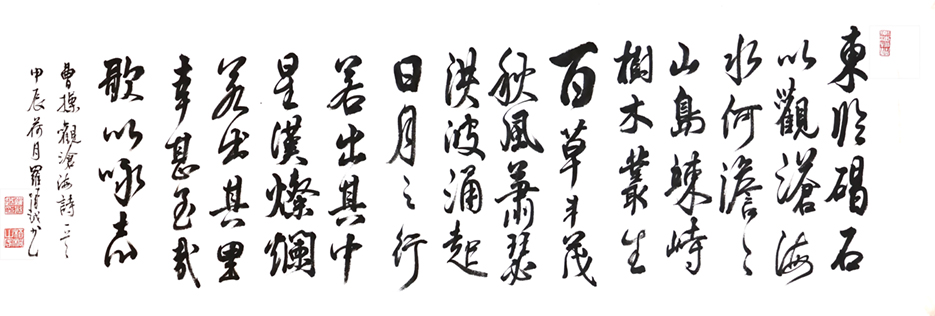 東臨碣石
以觀滄海
水何澹〻
山島竦峙
樹木叢生
百草丰茂
秋風蕭瑟
洪波涌起
日月之行
若出其中
星漢燦爛
若出其里
幸甚至哉
歌以咏志
曹操觀滄海詩一首
甲辰荷月羅